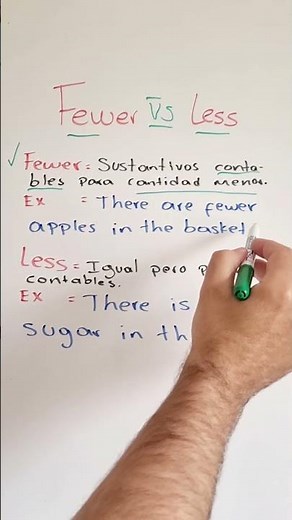 Fewer Vs Less
Fewer = Sustantivos conta-
bles para cantidad menor.
Ex = There are fewer
apples in the basket
Less = Igual pero
contables.
Ex = There is
sugar in